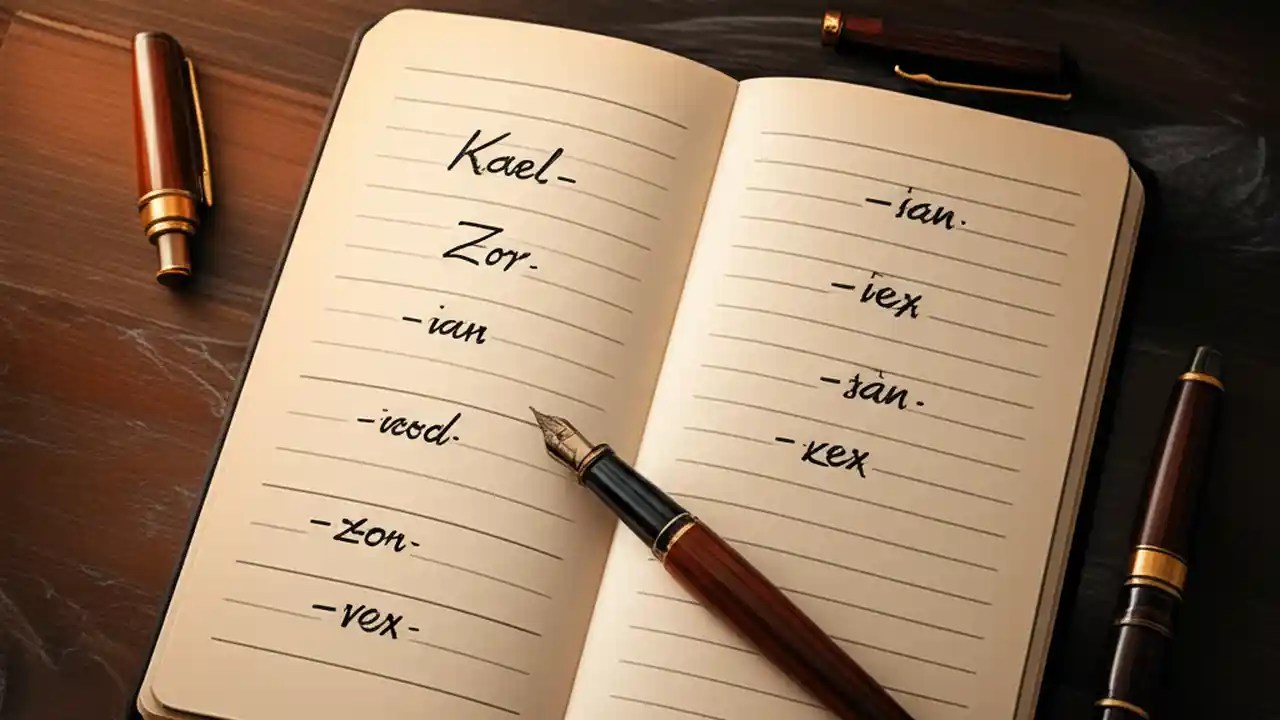 Kael-
Zor-
-ian
-icod.
-zon.
-vex.
-ian.
-iex
-sàn.
-xex